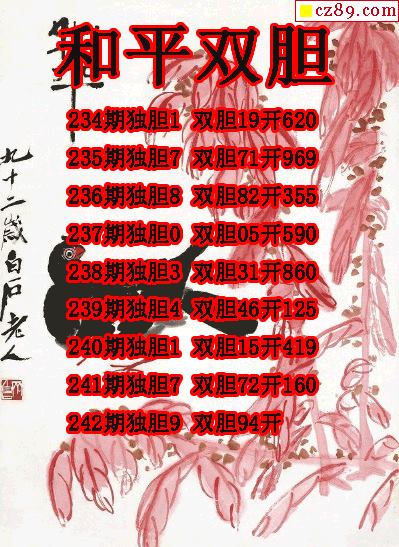 cz89.com
和平双胆
234期独胆1 双胆19开620
235期独胆7 双胆71开969
236期独胆8 双胆82开355
237期独胆0 双胆05开590
238期独胆3 双胆31开860
239期独胆4 双胆46开125
240期独胆1 双胆15开419
241期独胆7 双胆72开160
242期独胆9 双胆94开
九十二岁白石老人